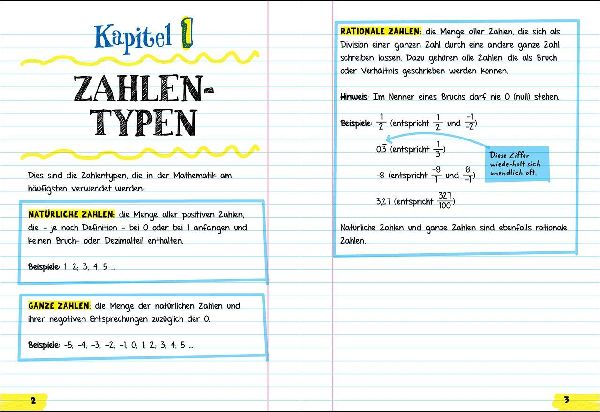 Kapitel 1
ZAHLEN-
TYPEN
Dies sind die Zahlentypen, die in der Mathematik am
häufigsten verwendet werden:
NATÜRLICHE ZAHLEN: die Menge aller positiven Zahlen,
die – je nach Definition – bei 0 oder bei 1 anfangen und
keinen Bruch- oder Dezimalteil enthalten.
Beispiele: 1, 2, 3, 4, 5 ...
GANZE ZAHLEN: die Menge der natürlichen Zahlen und
ihrer negativen Entsprechungen zuzüglich der 0.
Beispiele: -5, -4, -3, -2, -1, 0, 1, 2, 3, 4, 5 ...
2
RATIONALE ZAHLEN: die Menge aller Zahlen, die sich als
Division einer ganzen Zahl durch eine andere ganze Zahl
schreiben lassen. Dazu gehören alle Zahlen, die als Bruch
oder Verhältnis geschrieben werden können.
Hinweis: Im Nenner eines Bruchs darf nie 0 (null) stehen.
Beispiele: 1/2 (entspricht 1/2 und -1/-2)
0,3̅ (entspricht 1/3)
Diese Ziffer
wiederholt sich
unendlich oft.
-8 (entspricht -8/1 und 8/-1)
3,27 (entspricht 327/100)
Natürliche Zahlen und ganze Zahlen sind ebenfalls rationale
Zahlen.
3